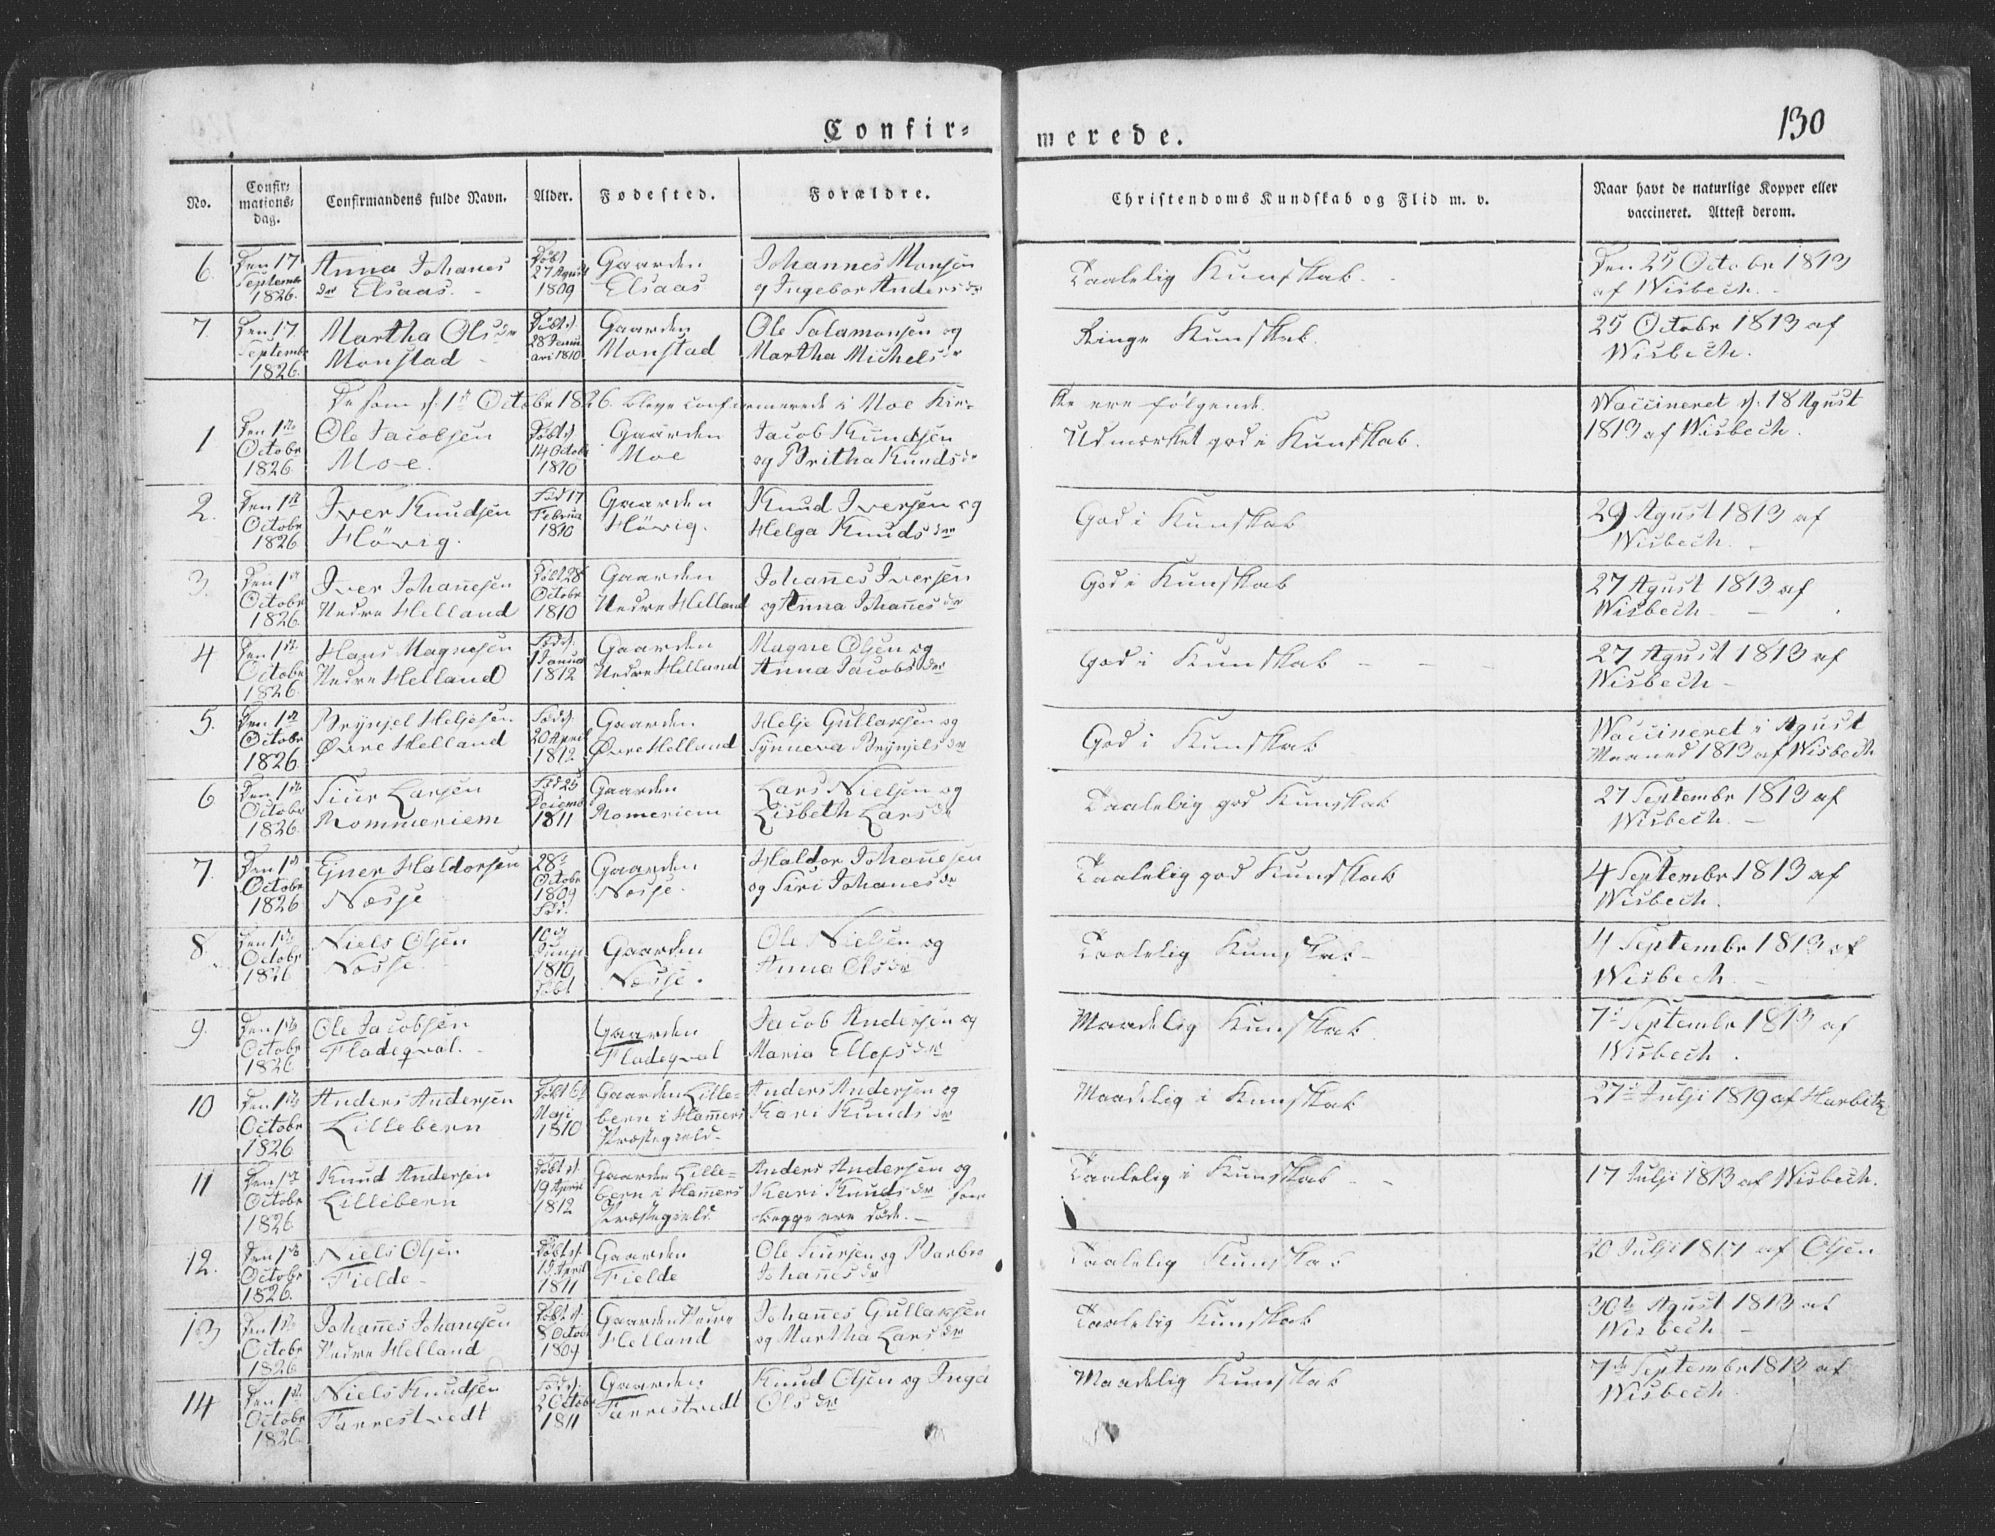 Confir=
merede.
130
No.
Confir=
mations=
dag.
Confirmandens fulde Navn.
Alder.
Fødested.
Forældre.
Christendoms Kundskab og Flid m. v.
Naar havt de naturlige Kopper eller
vaccineret. Attest derom.
6.
Den 17
Septembr
1826.
Anna Johanes
dr Elsaas.
Døbt
27 Agust
1809
Gaarden
Elsaas
Johannes Monsen
og Ingebor Anders dr
Taalelig Kunskab.
Den 25 Octobr 1813
af Wisbech.
7.
Den 17
Septembr
1826.
Martha Ols dr
Monstad
Døbt d.
28 Janu
ari 1810
Gaarden
Monstad
Ole Salamonsen og
Martha Michels dr
Ringe Kunskab.
25 Octobr 1813 af
Wisbech.
De som d. 1ste Octobr 1826. bleve confirmerede i Moe Kir=
ke ere følgende.
1
Den 1ste
Octobr
1826.
Ole Jacobsen
Moe.
Døbt d.
14 Octobr
1810
Gaarden
Moe
Jacob Knudsen
og Britha Knuds dr
Udmerket god i Kunskab.
Waccineret d. 18 Agust
1813 af Wisbech.
2.
Den 1ste
Octobr
1826
Iver Knudsen
Hövig.
Fød 17
Februa
1810
Gaarden
Hövig.
Knud Iversen og
Helga Knuds dr
God i Kunskab
29 Agust 1813 af
Wisbech.
3.
Den 1ste
Octobr
1826.
Iver Johanesen
Nedre Helland
Døbt 28
Octobr
1810
Gaarden
Nedre Helland
Johannes Iversen
og Anna Johannes dr
God i Kunskab
27 Agust 1813 af
Wisbech
4
Den 1ste
Octobr
1826.
Hans Magnesen
Nedre Helland
Fød d.
1 Janua
1812
Gaarden
Nedre Helland
Magne Olsen og
Anna Jacobs dr
God i Kunskab
27 Agust 1813 af
Wisbech
5.
Den 1ste
Octobr
1826.
Brynjel Heljesen
Øvre Helland
Fød d.
20 April
1812
Gaarden
Øvre Helland
Helje Gullaksen og
Synneva Brynjels dr
God i Kunskab
Waccineret i Agust
Maaned 1813 af Wisbech
6
Den 1ste
Octobr
1826.
Siur Larsen
Rommeriem
Fød 25
Decemb
1811
Gaarden
Romeriem
Lars Nielsen og
Lisbeth Lars dr
Taalelig god Kunskab
27 Septembr 1813 af
Wisbech.
7.
Den 1ste
Octobr
1826
Einer Haldorsen
Næsje
28
Octobr
1809
Fød.
Gaarden
Næsje.
Haldor Johanesen
og Siri Johanes dr
Taalelig god Kunskab
4 Septembr 1813 af
Wisbech.
8.
Den 1ste
Octobr
1826
Niels Olsen
Næsje.
10
Junji
1810
Døbt
Gaarden
Næsje.
Ole Nielsen og
Anna Ols dr
Taalelig Kunskab
4 Septembr 1813 af
Wisbech.
9.
Den 1ste
Octobr
1826
Ole Jacobsen
Fladeqval.
Gaarden
Fladeqval
Jacob Andersen og
Maria Ellefs dr
Maadelig Kunskab.
7de Septembr 1813 af
Wisbech.
10
Den 1ste
Octobr
1826
Anders Andersen
Lillebern
Døbt 6
Maji
1810
Gaarden Lille=
bern i Hamers
Præstegield.
Anders Andersen og
Kari Knuds dr
Maadelig i Kunskab
27de Julji 1819 af Harbitz
11
Den 1ste
Octobr
1826
Knud Andersen
Lillebern
Døbt d.
19 April
1812
Gaarden Lille=
bern i Hamers
Præstegield.
Anders Andersen og
Kari Knuds dr
begge ere døde.
Taalelig i Kunskab
17 Julji 1813 af Wisbech.
12.
Den 1ste
Octobr
1826.
Niels Olsen
Fielde
Døbt d.
13 April
1811
Gaarden
Fielde
Ole Siursen og Barbro
Johannes dr
Taalelig Kunskab
20 Julji 1817 af Olsen
13
Den 1ste
Octobr
1826
Johannes Johannesen
Nedre Helland
Døbt d.
8 Octobr
1809
Gaarden Nedre
Helland
Johannes Gullaksen
og Martha Lars dr
Taalelig Kunskab
30te Agust 1813 af
Wisbech
14
Den 1ste
Octobr
1826.
Niels Knudsen
Farrestvedt
Fød d.
2 Octobr
1811
Gaarden
Farrestvedt
Knud Olsen og Inga
Ols dr
Maadelig Kunskab
7de Septembr 1813 af
Wisbech.